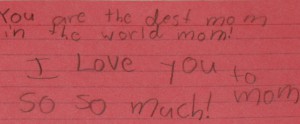 You are the dest mom
in the world mom!
I Love you to
so so much! mom